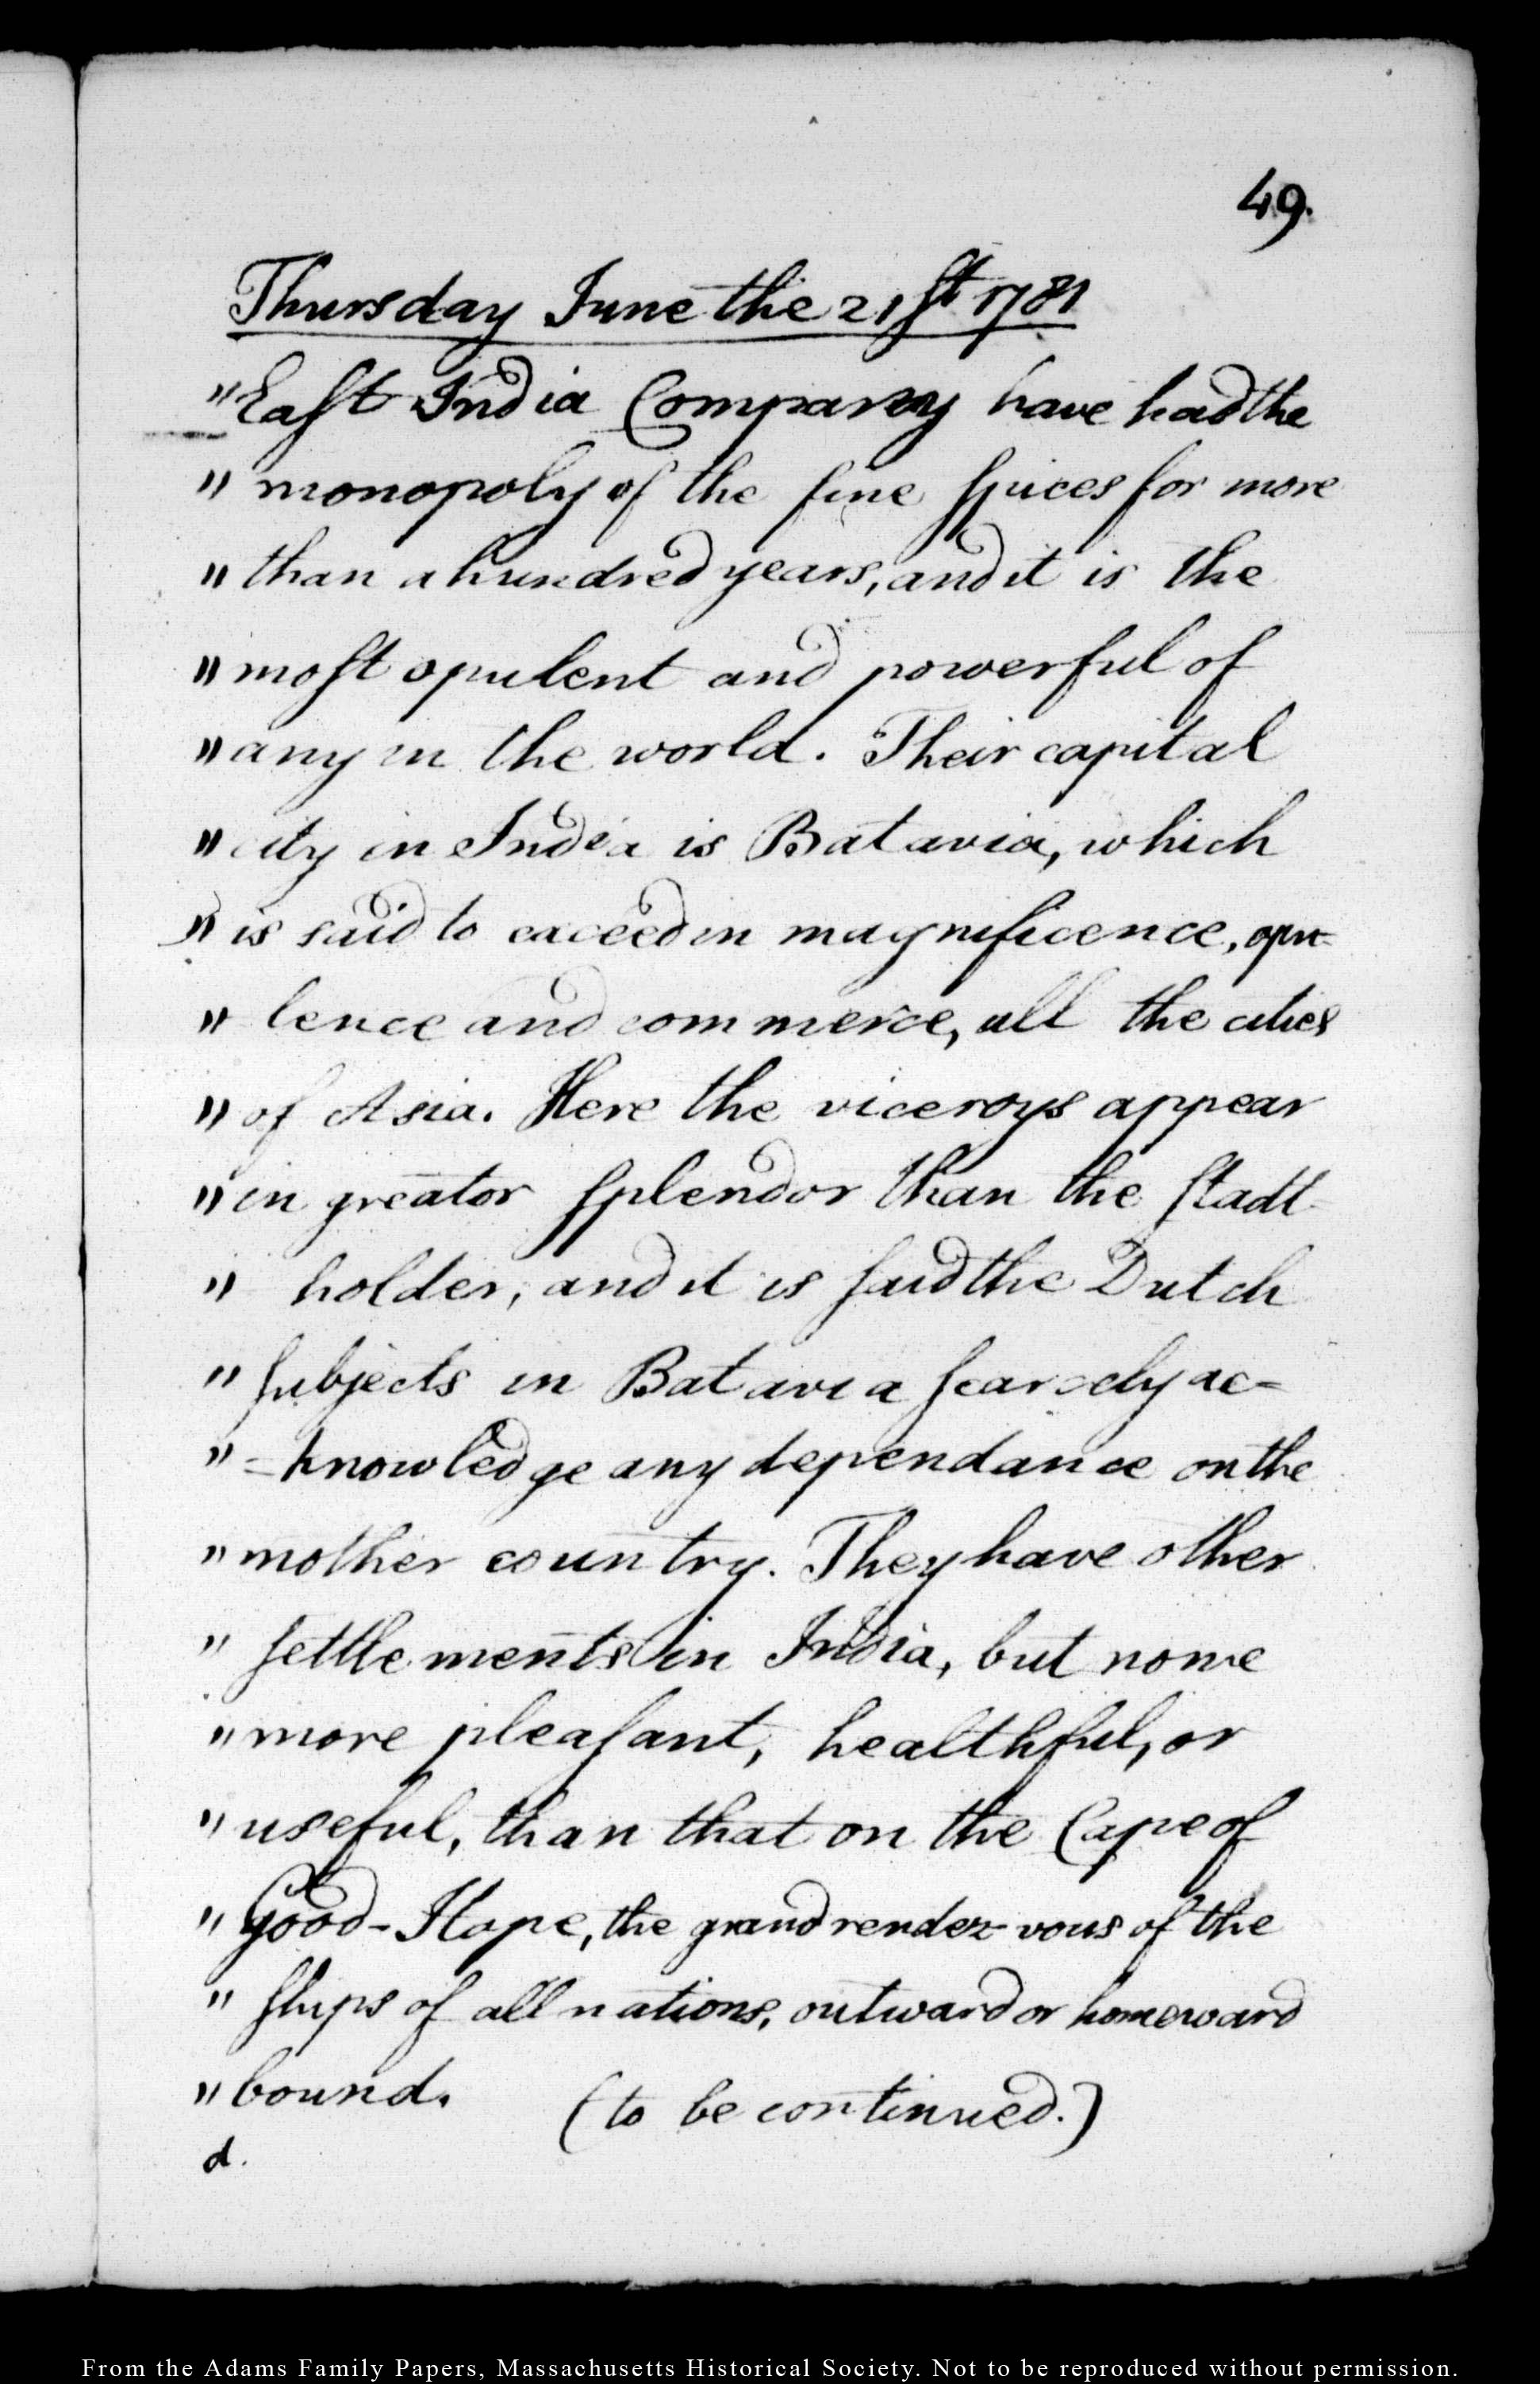 49.
Thursday June the 21st 1781
"East India Company have had the
" monopoly of the fine spices for more
" than a hundred years, and it is the
" most opulent and powerful of
" any in the world. Their capital
" city in India is Batavia, which
" is said to exceed in magnificence, opu=
" lence and commerce, all the cities
" of Asia. Here the viceroys appear
" in greator splendor than the stadt
" holder, and it is said the Dutch
" subjects in Batavia scarcely ac=
" =knowledge any dependance on the
" mother country. They have other
" settlements in India, but none
" more pleasant, healthful, or
" useful, than that on the Cape of
" Good-Hope, the grand rendez-vous of the
" ships of all nations, outward or homeward
" bound. (to be continued.)
d.
From the Adams Family Papers, Massachusetts Historical Society. Not to be reproduced without permission.